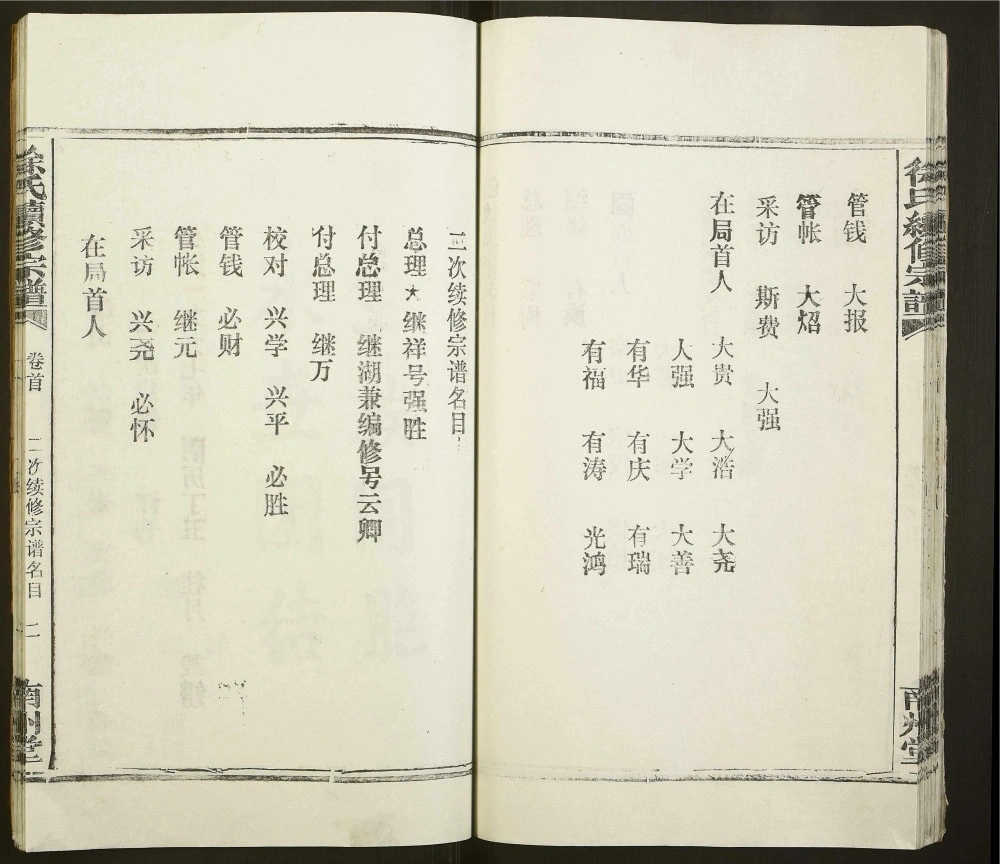 管钱 大报
管帐 大炤
采访 斯费 大强
在局首人 大贵 大浩 大尧
人强 大学 大善
有华 有庆 有瑞
有福 有涛 光鸿
二次续修宗谱名目
总理★继祥号强胜
付总理 继湖兼编修号云卿
付总理 继万
校对 兴学 兴平 必胜
管钱 必财
管帐 继元
采访 兴尧 必怀
在局首人
徐氏續修宗譜 卷首 二次续修宗谱名目 二 南州堂